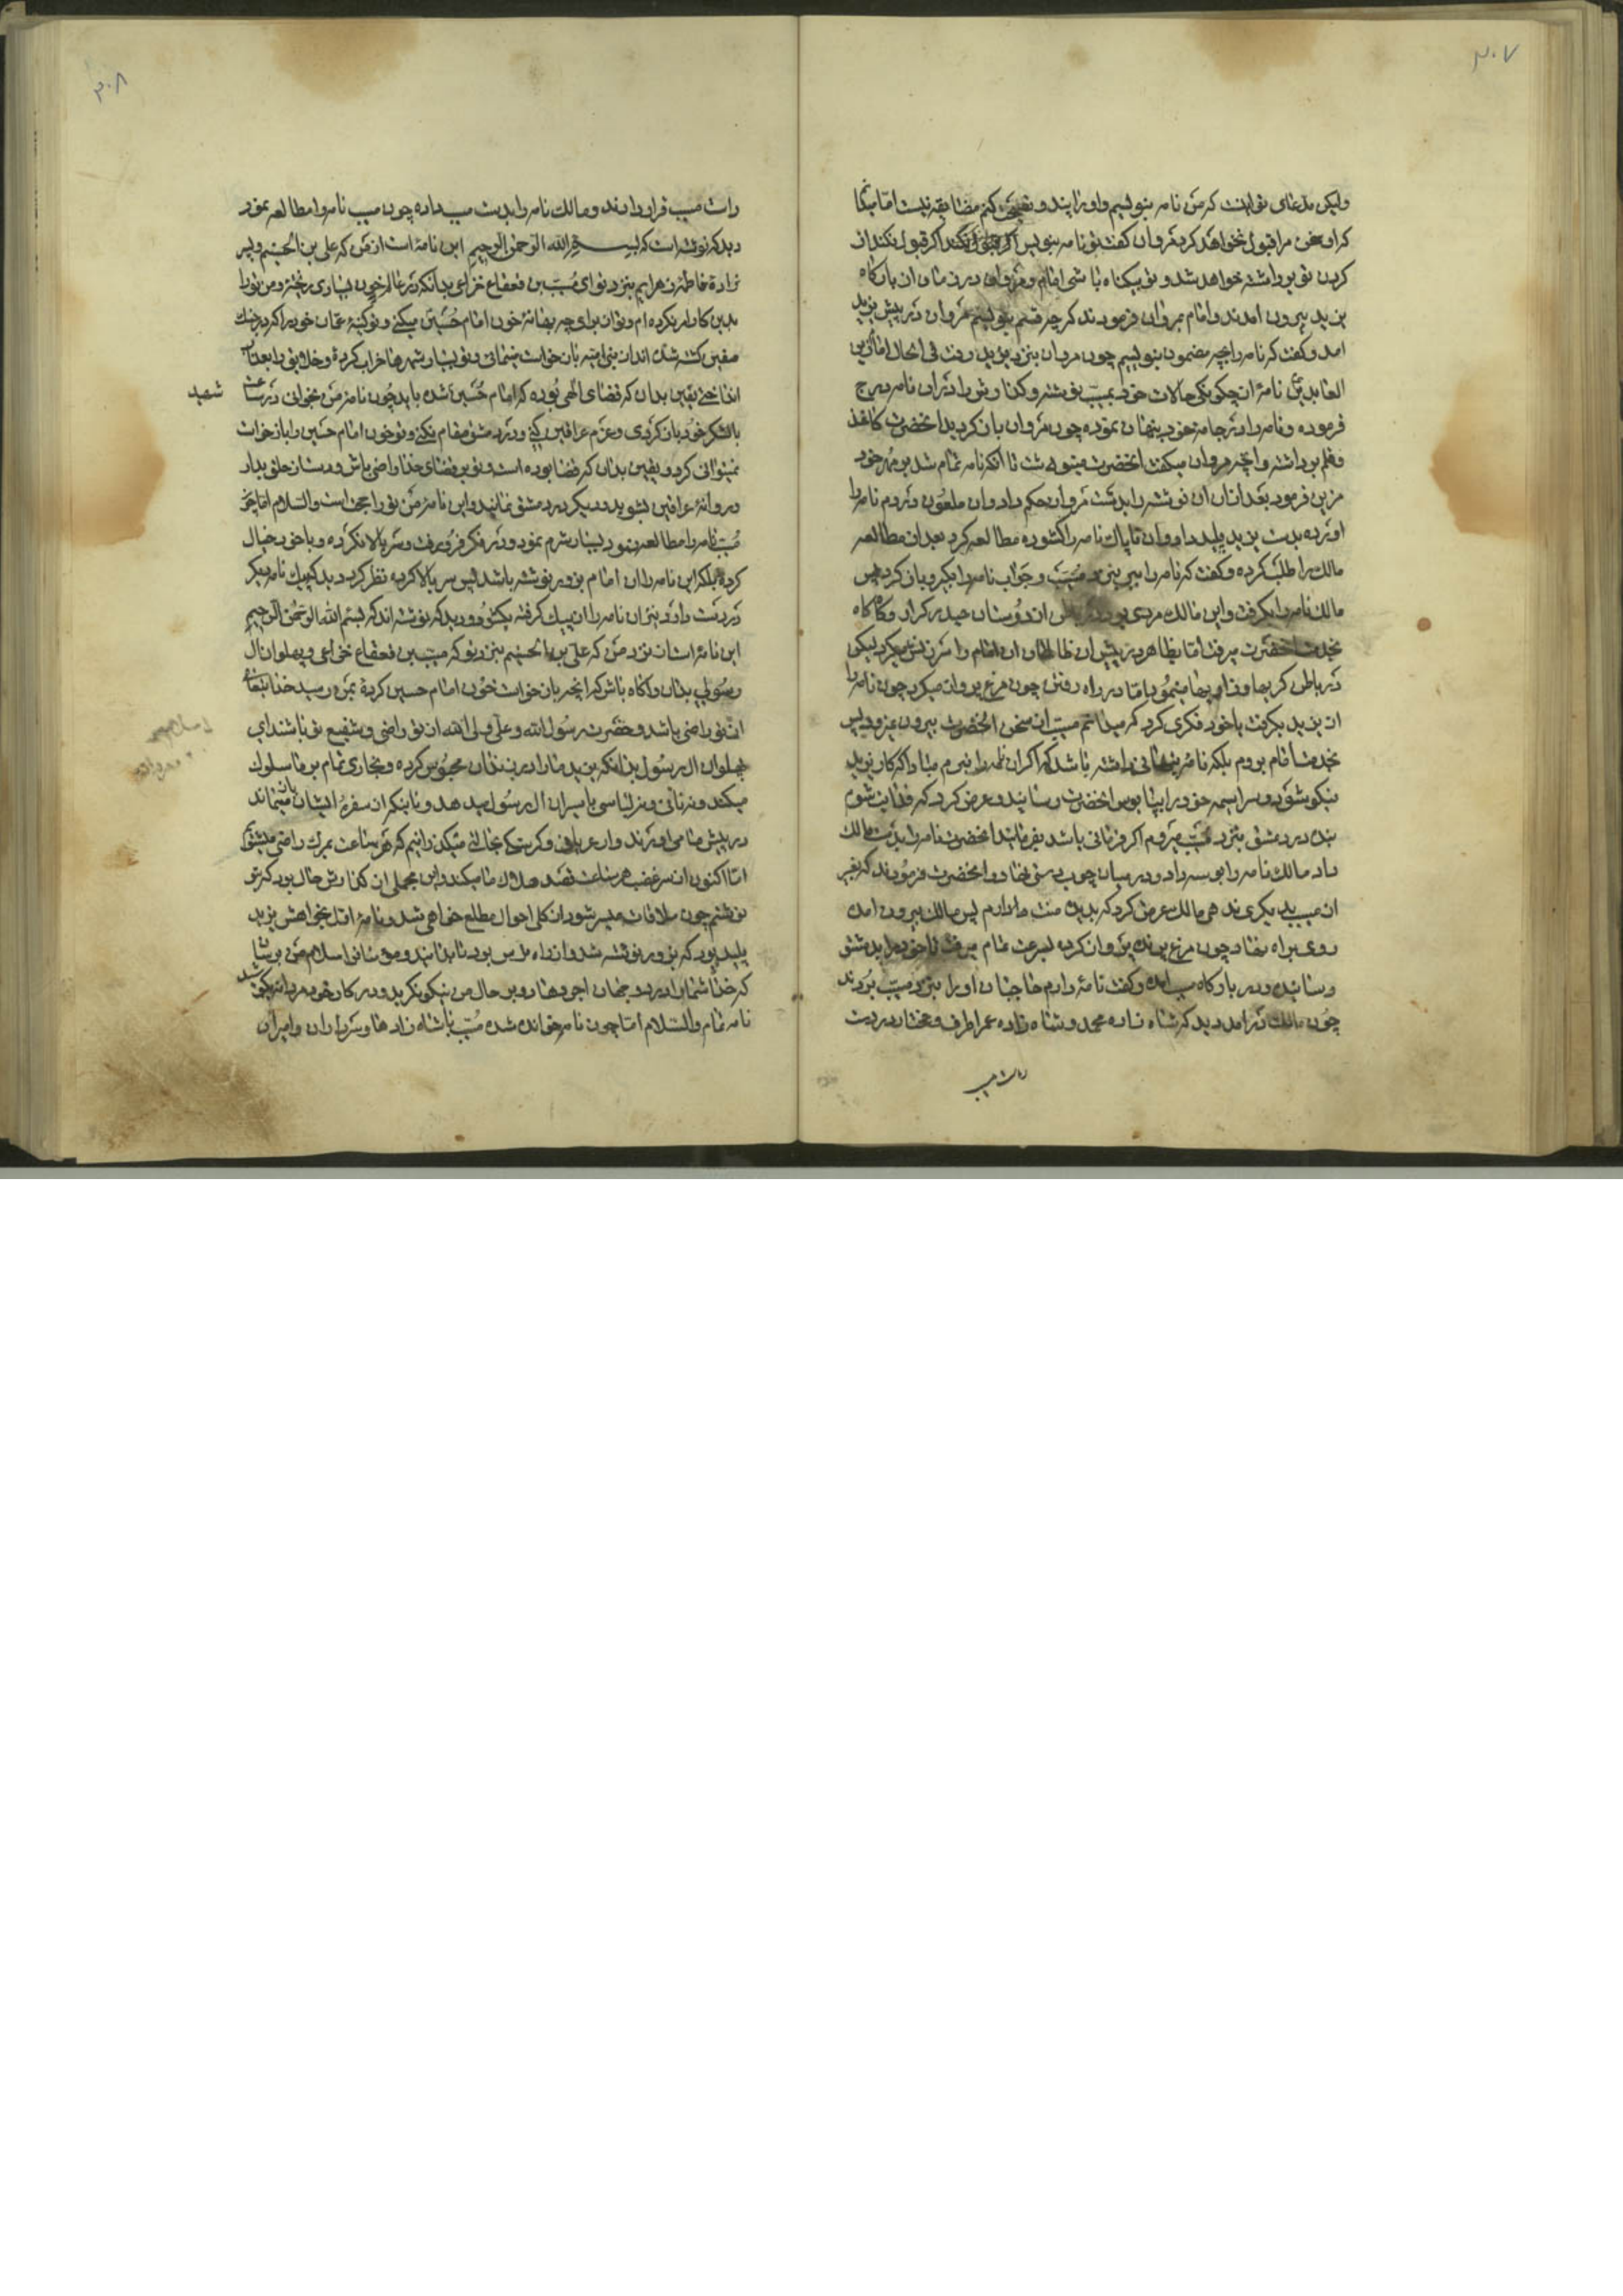 ۳۰۷
ولیکن مدعای تو اینست که من نامه بنویسم و او را پند و نصیحت کنم مضایقه نیست اما بیگمان
که او سخن مرا قبول نخواهد کرد مروان گفت تو نامه بنویس اگر قبول نکند از
کردن تو برداشته خواهد شد و تو بیکناه باشی امام و مروان در زمان از بارکاه
یزید بیرون امدند و امام بمروان فرمودند که چه قسم بنویسم مروان در پیش یزید
امد و گفت که نامه را بچه مضمون بنویسیم چون مروان بنزد یزید رفت فی الحال امام زین
العابدین نامهٔ از چکونکی حالات خود بمسیب نوشته و گذارش را در ان نامه درج
فرموده و نامه را در جامه خود پنهان نموده چون مروان باز کردید انحضرت کاغذ
و قلم برداشته و انچه مروان میکفت انحضرت مینوشت تا انکه نامه تمام شد بر مهر خود
مزین فرمود بعد از ان ان نوشته را بدست مروان حکم داد و ان ملعون مردم نامه را
اورده بدست یزید پلید داد و ان ناپاک نامه را کشوده مطالعه کرد بعد از مطالعه
مالک را طلب کرده و کفت که نامه را ببر بنزد مسیب و جواب نامه را بکیر و باز کرد پس
مالک نامه را بکرفت و این مالک مردی بود از دوستان حیدر کرار و گاه گاه
بخدمت انحضرت میرفت اما بظاهر در پیش ان ظالمان ان امام را سرزنش میکرد لیکن
در باطن کریها و زاریها مینمود اما در راه رفتن چون مرغ پرواز میکرد چون نامه را
از یزید بکرفت با خود فکری کرد که میدانم مسیب از سخن انحضرت بیرون نمیرود پس
بخدمت امام بروم بلکه نامه پنهانی داشته باشد که اکر ان نامه را نبرم مبادا که کار یزید
نیکو شود و سراسیمه خود را بپا بوس انحضرت رسانید و عرض کرد که فدایت شوم
بنده در دمشق بنزد مسیب میروم اکر فرمانی باشد بفرمائید انحضرت نامه را بدست مالک
داد مالک نامه را بوسه داد و در میان چوب دستی نهاد و انحضرت فرمودند که بغیر
از مسیب دیکری نداند مالک عرض کرد که بدیده منت دارم پس مالک بیرون امده
روی براه نهاد چون مرغ پرنده پرواز کرده بسرعت تمام میرفت تا خود را بدمشق
رسانیده و در بارکاه مسیب امده و کفت نامهٔ دارم حاجبان او را بنزد مسیب بردند
چون مالک درامد دید که شاه زاده محمد و شاه زاده عمر اطرف و مختار در دست
راست مسیب
۳۰۸
راست مسیب قرار دارند و مالک نامه را بدست مسیب داده چون مسیب نامه را مطالعه نمود
دید که نوشته است که بسم الله الرحمن الرحیم این نامهٔ است از من که علی بن الحسینم و پسر
زادهٔ فاطمه زهرایم بنزد تو ای مسیب بن قعقاع خزاعی بدانکه در عالم خون بسیاری ریخته و من تو را
بدین کار امر نکرده ام و تو از برای چه بهانهٔ خون امام حسین میکنی و تو کینهٔ عمان خود را که در جنک
صفین کشته شده اند از بنی امیه باز خواست مینمائی و تو بسیار شهرها خراب کردهٔ و خلایق را بعذاب
انداختی یقین بدان که قضای الهی بوده که امام حسین شده باید چون نامه من بخوانی در ساعت
شهید
با لشکر خود باز کردی و عزم عراقین کنی و در دمشق مقام نکنی و تو خون امام حسین را باز خواست
نمیتوانی کرد و یقین بدان که قضا بوده است و تو بر قضای خدا راضی باش و دست از خلق بدار
و روانهٔ عراقین بشوید و دیکر در دمشق نمانید و این نامه من تو را حجت است والسلام اما چون
مسیب نامه را مطالعه نمود بسیار شرم نمود و در فکر فرو رفت و سر بالا نکرده و با خود خیال
کرد بلکه این نامه را از امام بزور نوشته باشد پس سر بالا کرده نظر کرد دید که پیک نامه دیکر
در دست دارد بنزان نامه را از پیک کرفته بکشود و دید که نوشته اند که بسم الله الرحمن الرحیم
این نامهٔ است از نزد من که علی بن الحسینم بنزد تو که مسیب بن قعقاع خزاعی و پهلوان ال
رسولی بدان و اکاه باش که انچه باز خواست خون امام حسین کردهٔ بمن رسید خدایتعالی
از تو راضی باشد و حضرت رسول الله و علی ولی الله از تو راضی و شفیع تو باشند ای
پهلوان ال رسول بدانکه یزید ما را در زندان محبوس کرده و بخاری تمام بر ما سلوک
میکند و نه نانی و نه لباسی باسیران ال رسول میدهد و نانیکه از سفرهٔ ایشان باز میماند
در پیش ما می اورند و از عریانی و کرسنکی بحالتی میگذرانیم که هر ساعت بمرک راضی میشویم
اما اکنون از سر غضب هر ساعت قصد هلاک ما میکند و این مجملی از گذارش حال بود که بتو
نوشتم چون ملاقات میسر شود از کلی احوال مطلع خواهی شد و نامهٔ اول بخواهش یزید
پلید بود که بزور نوشته شد و از راه ترس بود تا بدانید و مؤمنان را سلام من برسان
که خدا شما را در دو جهان اجر دهاد و بر حال من نیکو نکرید و در کار خود مردانه بکوشید
نامه تمام والسلام اما چون نامه خوانده شده مسیب با شاه زادها و سرداران و امیران